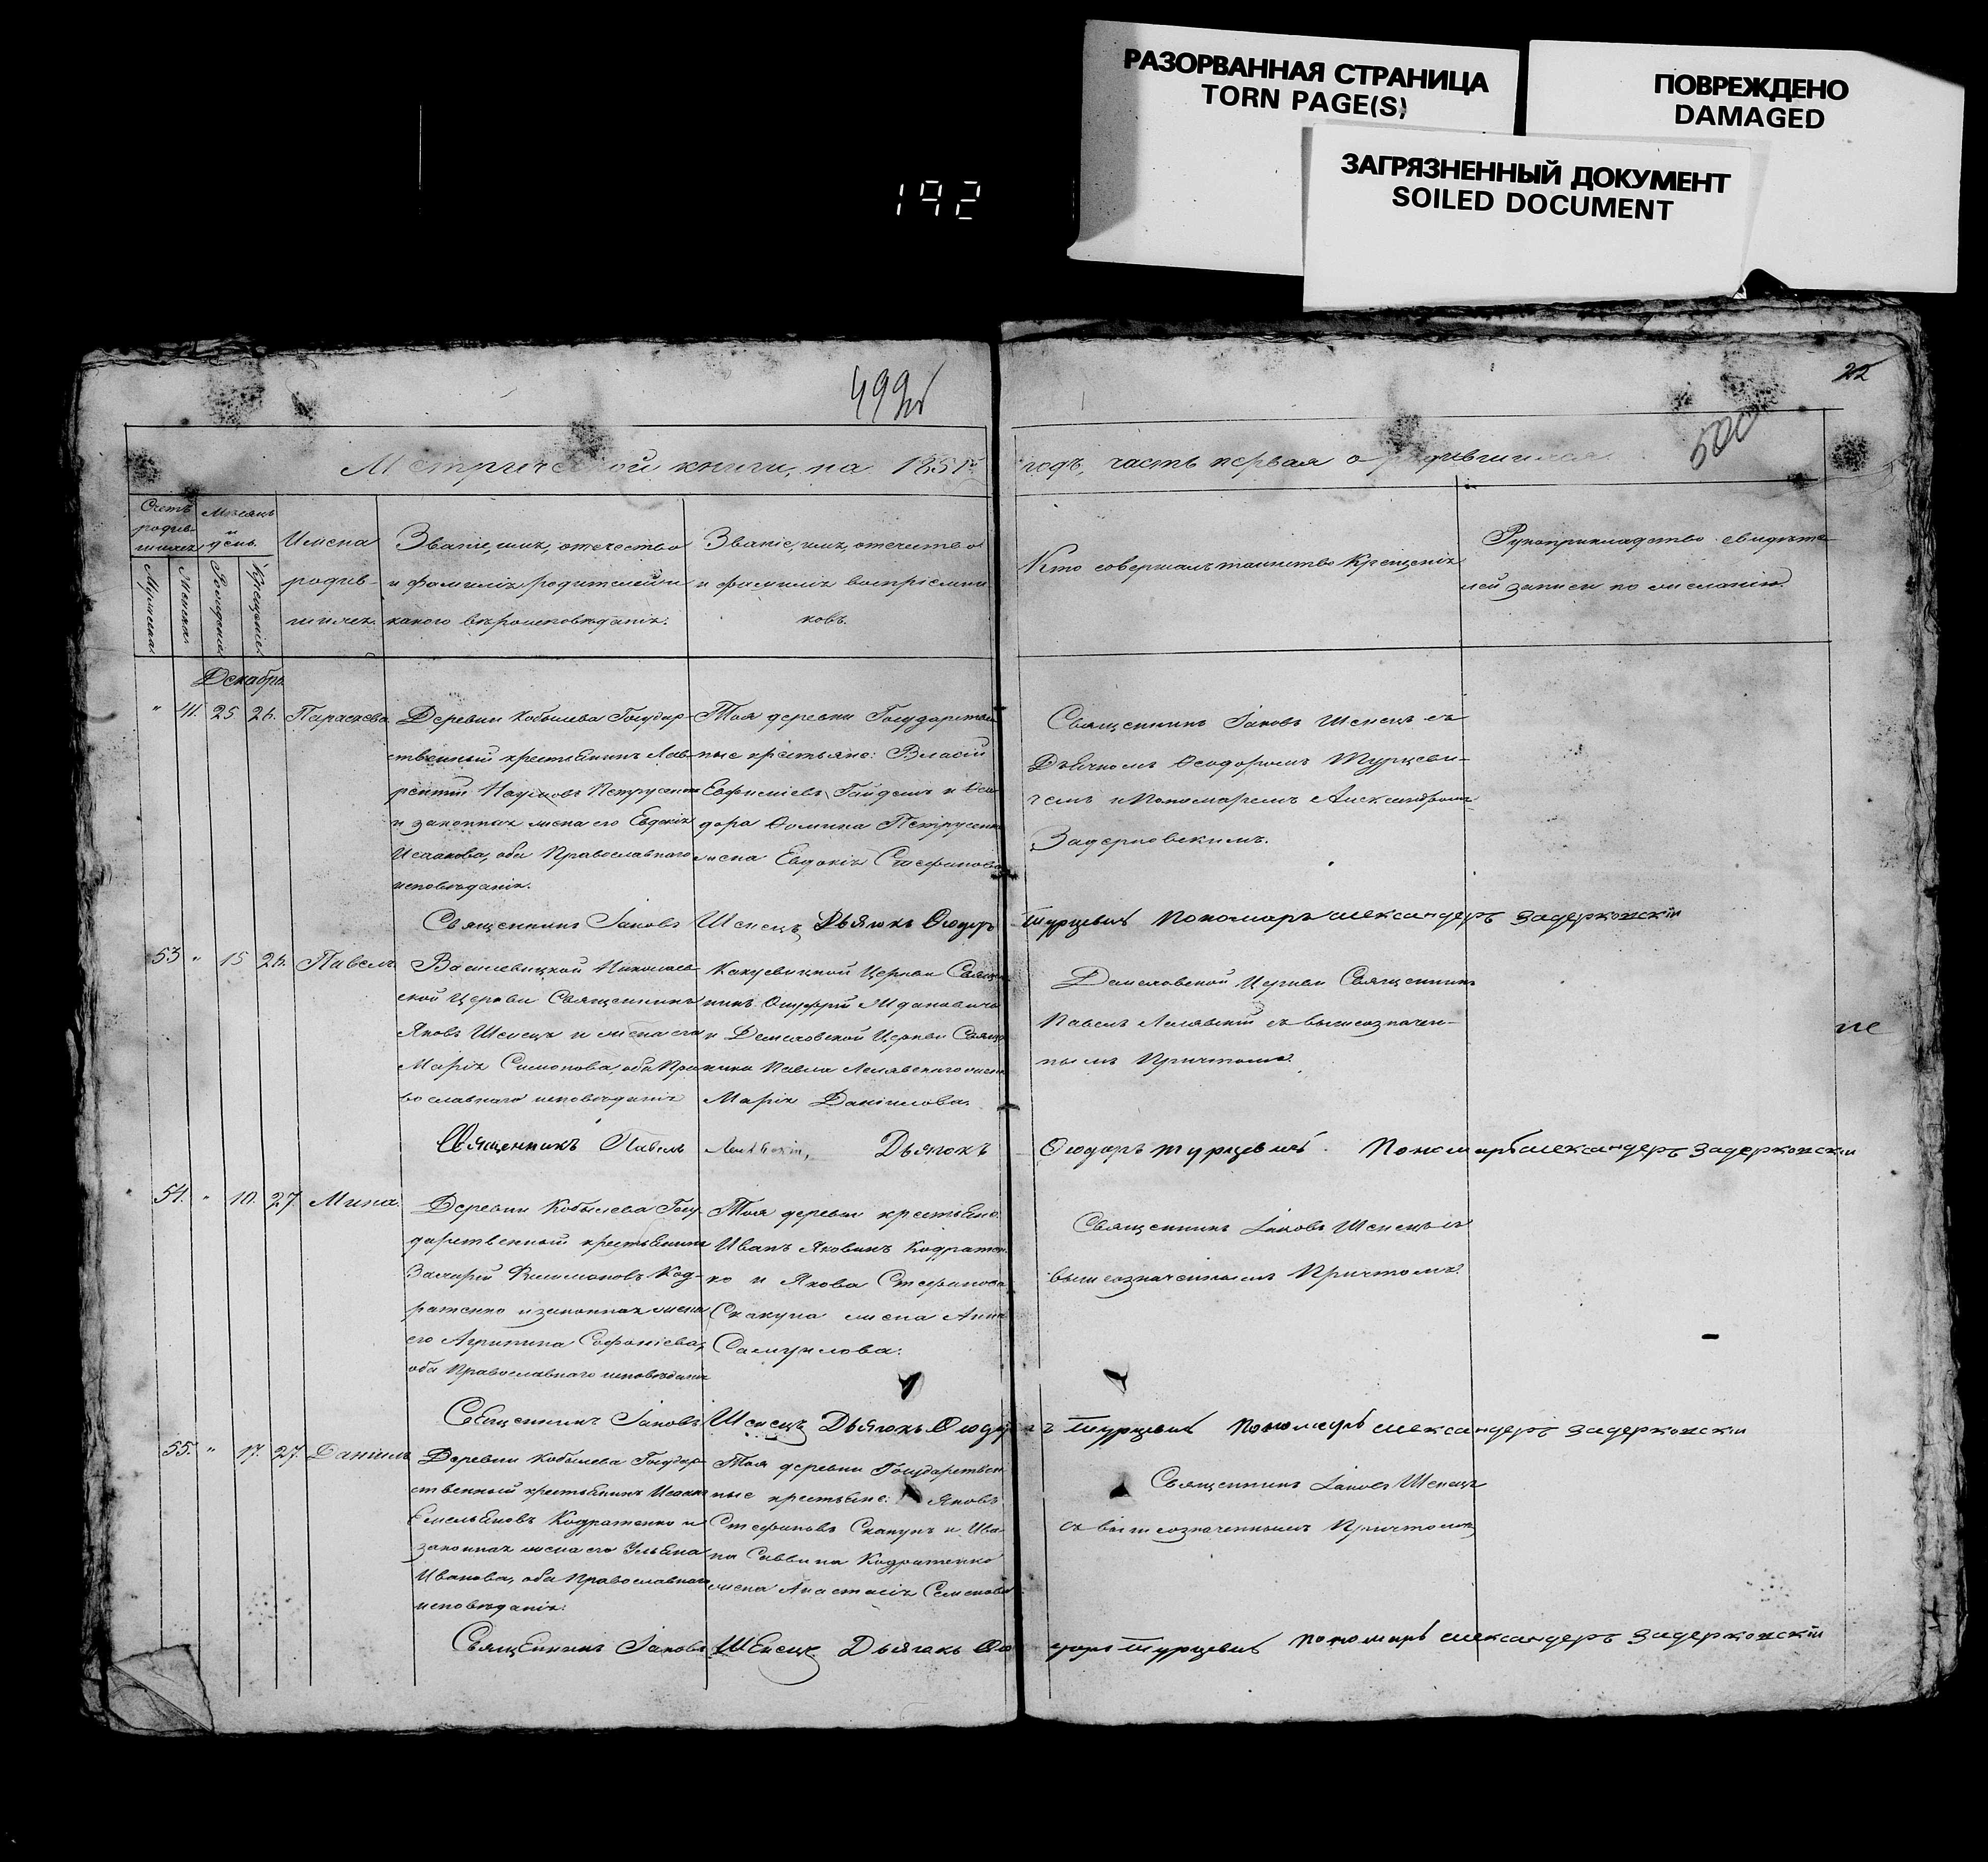 РАЗОРВАННАЯ СТРАНИЦА
TORN PAGE(S)
ПОВРЕЖДЕНО
DAMAGED
ЗАГРЯЗНЕННЫЙ ДОКУМЕНТ
SOILED DOCUMENT
192
499об
22
500
Метрической книги, на 1851й
годъ, часть первая о родившихся
Счетъ родившихся
Мѣсяцъ и день
Мужеска
Женска
Рожденія
Крещенія
Имена
родив-
шихся
Званіе, имя, отечество
и фамилія родителей и
какого вѣроисповѣданія.
Званіе, имя, отечество
и фамилія воспріемни
ковъ.
Кто совершалъ таинство Крещенія
Рукоприкладство свидѣте
лей записи по желанію.
Декабрь
" 41. 25. 26. Параскева
Деревни Кобылева Государ-
ственный крестьянинъ Лав-
рентій Наумовъ Петрусенко
и законная жена его Евдокія
Исаакова, оба Православнаго
исповѣданія.
Тоя деревни Государствен
ные крестьяне: Власій
Евфиміевъ Гайдешъ и Ѳео
дора Ѳомина Петрусенко
жена Евдокія Стефанова
Священникъ Іаковъ Шенецъ съ
Дьячкомъ Ѳеодоромъ Турцеви-
чемъ и Пономаремъ Александромъ
Задерковскимъ.
Священникъ Іаковъ Шенецъ Дьячокъ Ѳеодоръ Турцевичъ Пономарь Александеръ Задерковскій
53 " 15 26. Павелъ
Василевицкой Николаев
ской Церкви Священникъ
Яковъ Шенецъ и жена его
Марія Симонова, оба Пра
вославнаго исповѣданія
Церкви Священ
никъ
и Демеховской Церкви Священ
ника Павла жена
Марія Даніилова.
Демеховской Церкви Священникъ
Павелъ съ вышеозначен-
нымъ Причтомъ.
Священникъ Павелъ Дьячокъ Ѳеодоръ Турцевичъ. Пономарь Александеръ Задерковскій
не
54. " 10. 27. Мина.
Деревни Кобылева Госу
дарственный крестьянинъ
Захарій Филимоновъ Код-
ратенко и законная жена
его Агрипина Софоніева,
оба Православнаго исповѣданія
Тоя деревни крестьяне:
Иванъ Яковинъ Кодратен
ко и Якова Стефанова
Скакуна жена Анна
Самуилова.
Священникъ Іаковъ Шенецъ съ
вышеозначеннымъ Причтомъ.
Священникъ Іаковъ Шенецъ Дьячокъ Ѳеодоръ Турцевичъ Пономарь Александеръ Задерковскій
55. " 17. 27. Даніилъ
Деревни Кобылева Государ-
ственный крестьянинъ Исаакъ
Емельяновъ Кодратенко и
законная жена его Ульяна
Иванова, оба Православнаго
исповѣданія.
Тоя деревни Государствен
ные крестьяне: Яковъ
Стефановъ Скакунъ и Ива-
на Саввина Кодратенко
жена Анастасія Семенова
Священникъ Іаковъ Шенецъ
съ вышеозначеннымъ Причтомъ
Священникъ Іаковъ Шенецъ Дьячокъ Ѳеодоръ Турцевичъ Пономарь Александеръ Задерковскій